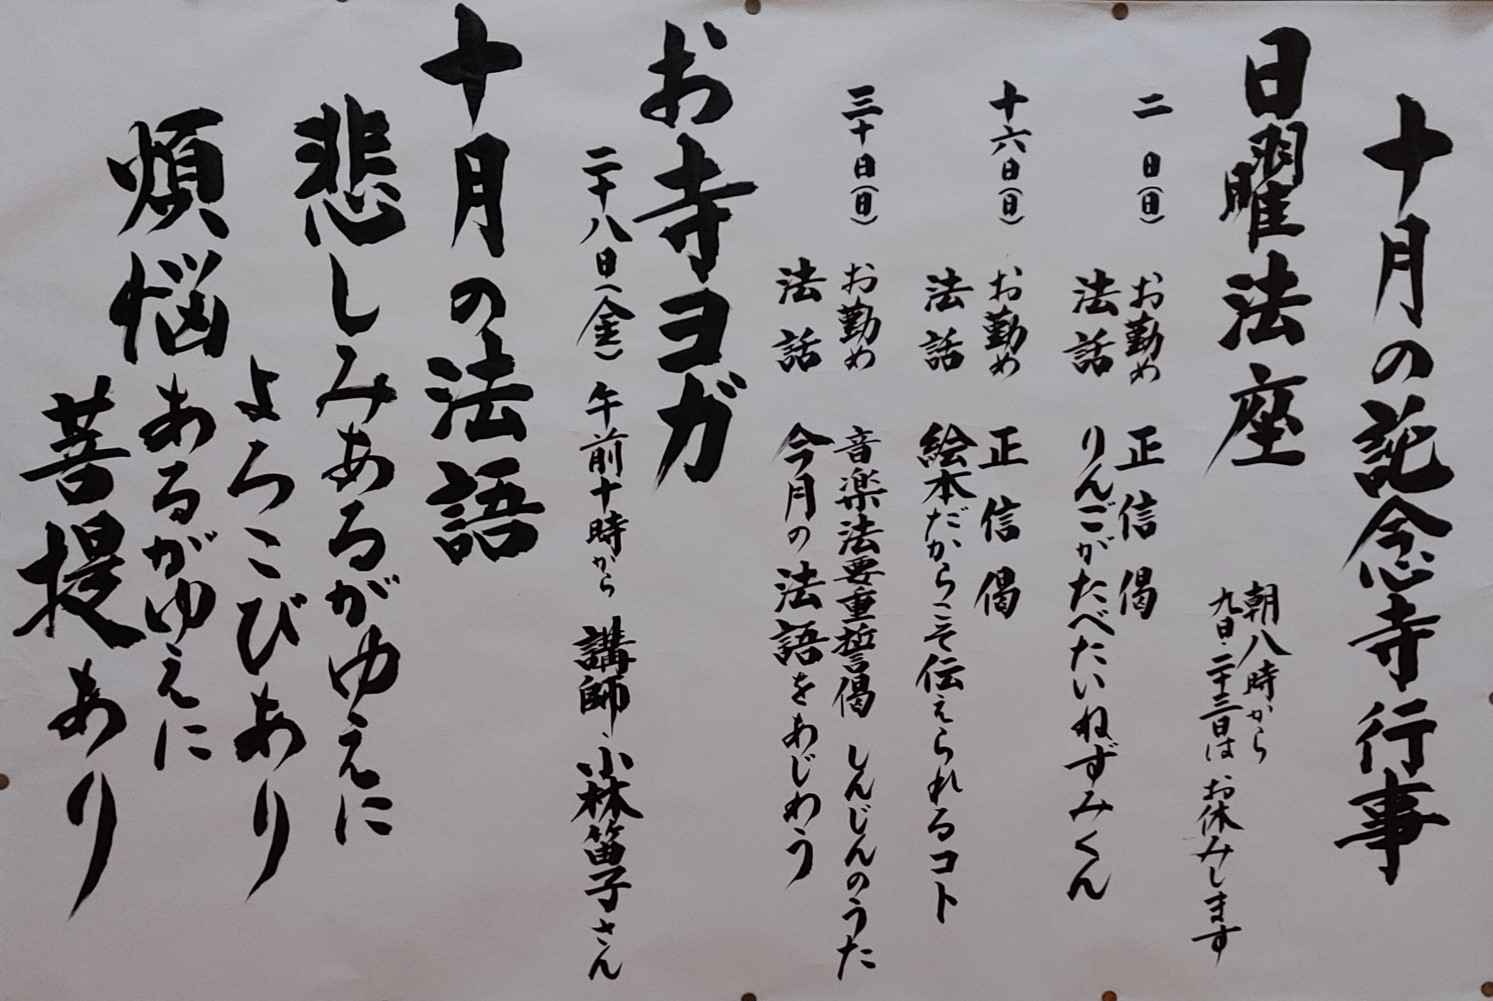 十月の記念寺行事
日曜法座
朝八時から
九日・二十三日は お休みします
二 日(日) お勤め 正信偈
法話 りんごがたべたいねずみくん
十六日(日) お勤め 正信偈
法話 絵本だからこそ伝えられるコト
三十日(日) お勤め 音楽法要重誓偈 しんじんのうた
法話 今月の法語をあじわう
お寺ヨガ
二十八日(金) 午前十時から 講師・小林笛子さん
十月の法語
悲しみあるがゆえに
よろこびあり
煩悩あるがゆえに
菩提あり